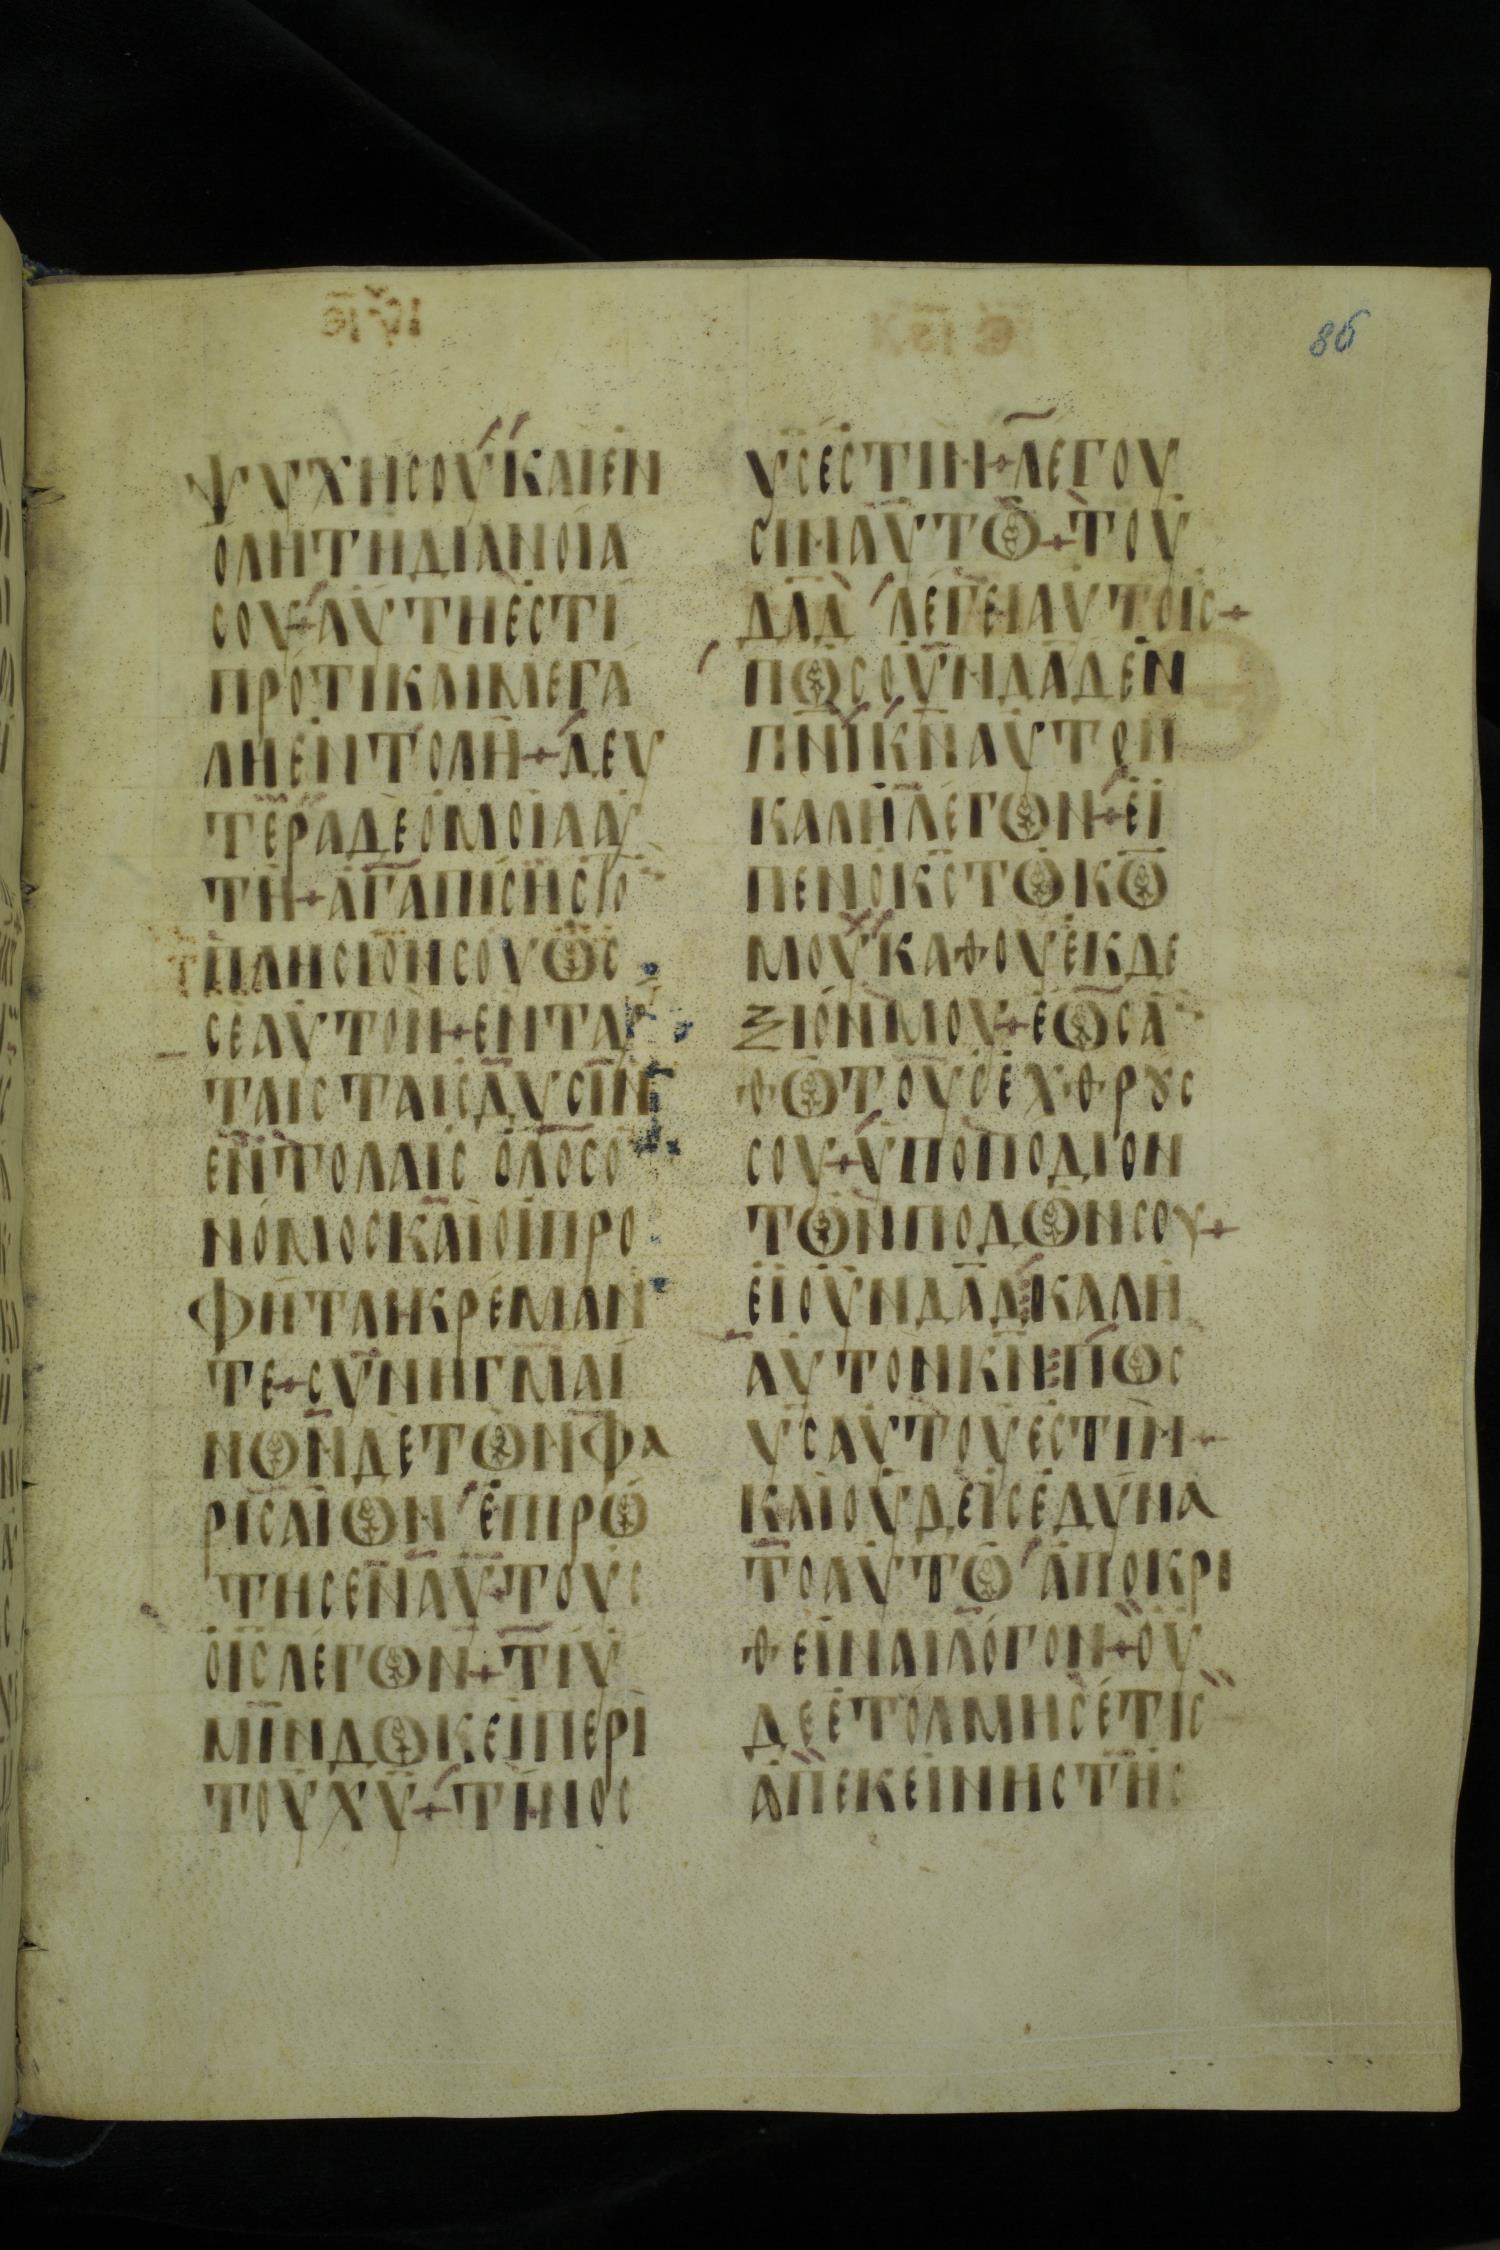 86
ΨΥΧΗСΟΥΚΑΙΕΝ
ΟΛΗΤΗΔΙΑΝΟΙΑ
СΟΥ+ΑΥΤΗΕСΤΙ
ΠΡΟΤΙΚΑΙΜΕΓΑ
ΛΗΕΝΤΟΛΗ+ΔΕΥ
ΤΕΡΑΔΕΟΜΟΙΑΑΥ
ΤΗ+ΑΓΑΠΙСΗСΤΟ
ΠΛΗСΙΟΝСΟΥΩС
СΕΑΥΤΟΝ+ΕΝΤΑΥ
ΤΑΙСΤΑΙСΔΥСΙΝ
ΕΝΤΟΛΑΙС ΟΛΟСΟ
ΝΟΜΟСΚΑΙΟΙΠΡΟ
ΦΗΤΑΗΚΡΕΜΑΝ
ΤΕ+СΥΝΗΓΜΑΙ
ΝΩΝΔΕΤΩΝΦΑ
ΡΙСΑΙΩΝ ΕΠΙΡΩ
ΤΗСΕΝΑΥ+ΤΟΥС
ΟΙСΛΕΓΩΝ+ΤΙΥ
ΜΙΝΔΩΚΕΙΠΕΡΙ
ΤΟΥΧΥ+ΤΗΝΟС
ΥСΕСΤΙΝ+ΛΕΓΟΥ
СΙΝΑΥΤΩ+ΤΟΥ
ΔΑΔ ΛΕΓΕΙΑΥΤΟΙС+
ΠΩСΟΥΝΔΑΔΕΝ
ΠΝΙΚΝΑΥΤΟΝ
ΚΑΛΗΛΕΓΩΝ+ΕΙ
ΠΕΝΟΚСΤΩΚΩ
ΜΟΥΚΑΘΟΥΕΚΔΕ
ΞΙΟΝΜΟΥ+ΕΩСΑ
ΘΩΤΟΥСΕΧΘΡȢС
СΟΥ+ΥΠΟΠΟΔΙΟΝ
ΤΩΝΠΟΔΩΝСΟΥ+
ΕΙΟΥΝΔΑΔΚΑΛΗ
ΑΥΤΟΝΚΝ ΠΩС
ΥСΑΥΤΟΥΕСΤΙΝ+
ΚΑΙΟΥΔΕΙСΕΔΥΝΑ
ΤΟΑΥΤΩ ΑΠΟΚΡΙ
ΘΕΙΝΑΙΛΟΓΟΝ+ΟΥ
ΔΕΕΤΟΛΜΗСΕΤΙС
ΑΠΕΚΕΙΝΗСΤΗС